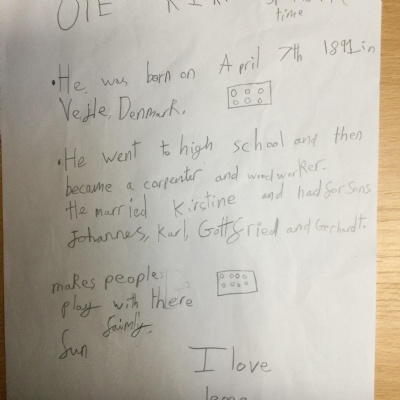 OlE
time
• He was born on April 7th 1891 in
Vejle, Denmark.
• He went to high school and then
became a carpenter and woodworker.
He married Kirstine and had for sons
Johannes, Karl, Gottfried and Gerhardt.
makes people
play with there
faimly.
fun
I love
lego